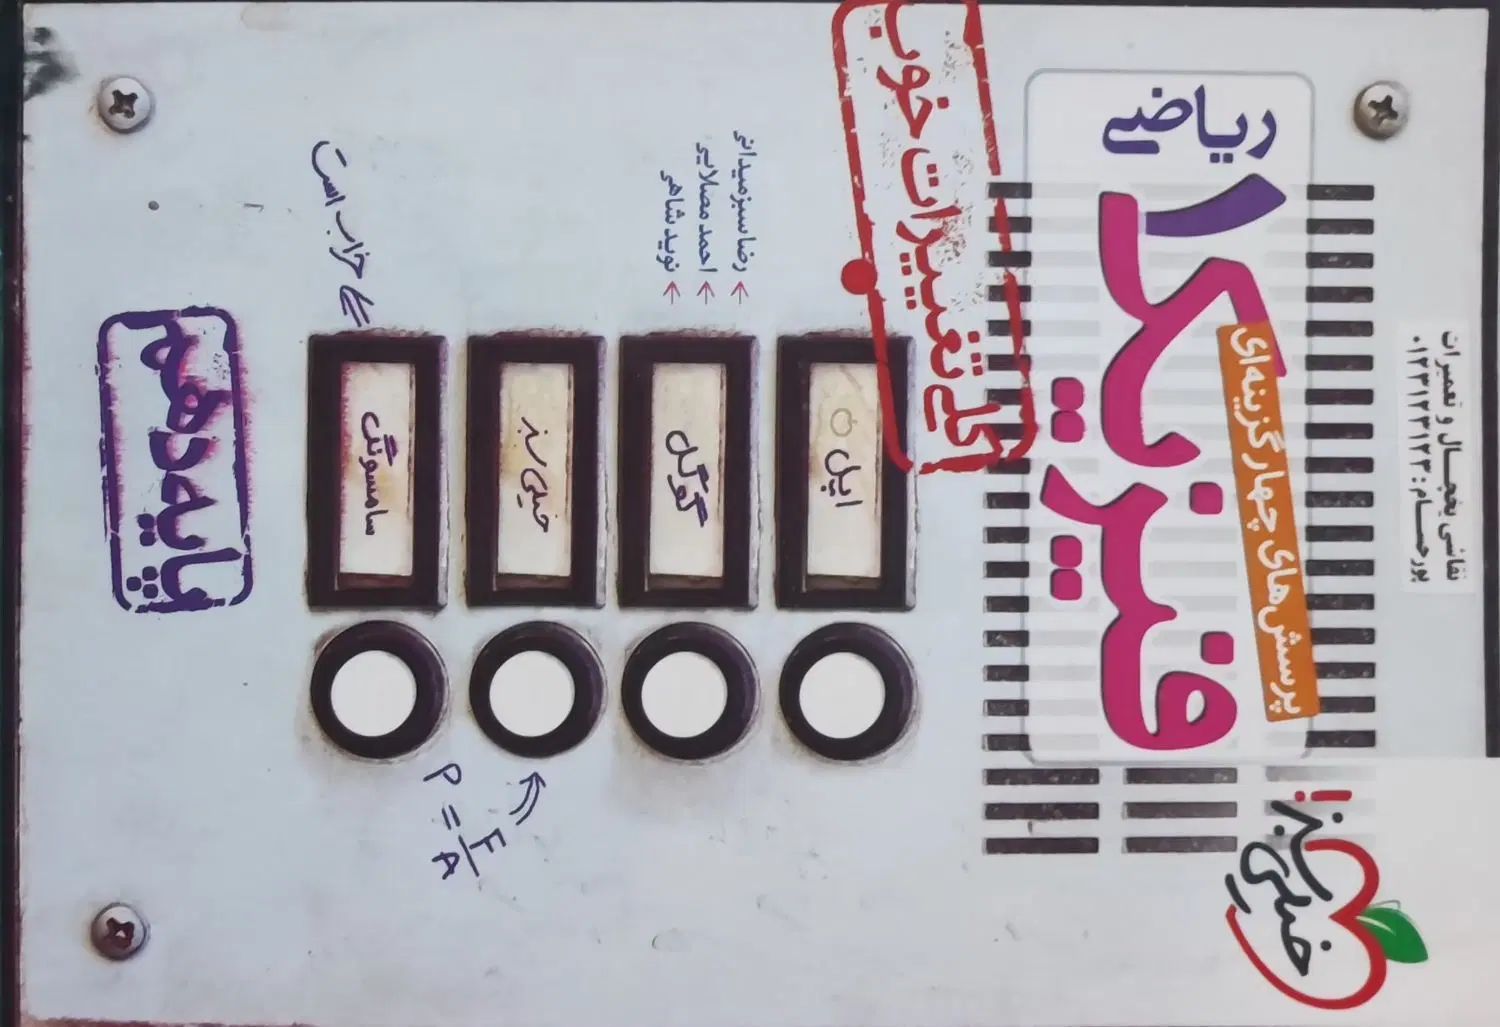 ریاضی
فیزیک ۱
پرسش‌های چهارگزینه‌ای
نقاشی یخچال و تعمیرات
پورحسام: ۰۱۲۳۱۲۳۱۲۳
کلی تغییرات خوب
رضا سبزمیدانی
احمد مصلایی
نوید شاهی
اپل
گوگل
خیلی سبز
سامسونگ
خراب است
P = F/A
پایه دهم
خیلی سبز!